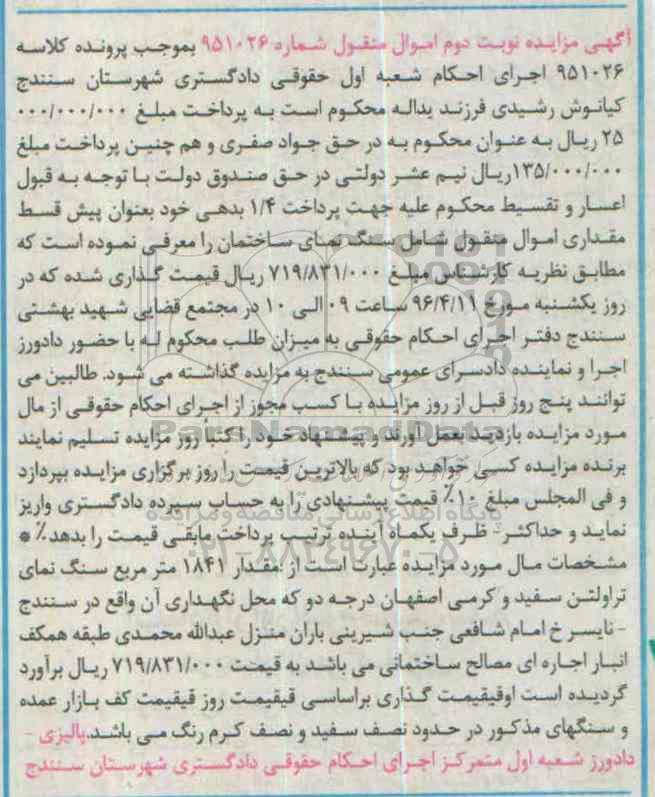 آگهی مزایده نوبت دوم اموال منقول شماره ۹۵۱۰۲۶ بموجب پرونده کلاسه
۹۵۱۰۲۶ اجرای احکام شعبه اول حقوقی دادگستری شهرستان سنندج
کیانوش رشیدی فرزند یداله محکوم است به پرداخت مبلغ ۰۰۰/۰۰۰/۰۰۰
۲۵ ریال به عنوان محکوم به در حق جواد صفری و هم چنین پرداخت مبلغ
۱۳۵/۰۰۰/۰۰۰ریال نیم عشر دولتی در حق صندوق دولت با توجه به قبول
اعسار و تقسیط محکوم علیه جهت پرداخت ۱/۴ بدهی خود بعنوان پیش قسط
مقداری اموال منقول شامل سنگ نمای ساختمان را معرفی نموده است که
مطابق نظریه کارشناس مبلغ ۷۱۹/۸۳۱/۰۰۰ ریال قیمت گذاری شده که در
روز یکشنبه مورخ ۹۶/۴/۱۱ ساعت ۰۹ الی ۱۰ در مجتمع قضایی شهید بهشتی
سنندج دفتر اجرای احکام حقوقی به میزان طلب محکوم له با حضور دادورز
اجرا و نماینده دادسرای عمومی سنندج به مزایده گذاشته می شود. طالبین می
توانند پنج روز قبل از روز مزایده با کسب مجوز از اجرای احکام حقوقی از مال
مورد مزایده بازدید بعمل آورند و پیشنهاد خود را کتباً روز مزایده تسلیم نمایند
برنده مزایده کسی خواهد بود که بالاترین قیمت را روز برگزاری مزایده بپردازد
و فی المجلس مبلغ ۱۰٪ قیمت پیشنهادی را به حساب سپرده دادگستری واریز
نماید و حداکثر- ظرف یکماه آینده ترتیب پرداخت مابقی قیمت را بدهد٪ *
مشخصات مال مورد مزایده عبارت است از :مقدار ۱۸۴۱ متر مربع سنگ نمای
تراولتن سفید و کرمی اصفهان درجه دو که محل نگهداری آن واقع در سنندج
- نایسر خ امام شافعی جنب شیرینی باران منزل عبدالله محمدی طبقه همکف
انبار اجاره ای مصالح ساختمانی می باشد به قیمت ۷۱۹/۸۳۱/۰۰۰ ریال برآورد
گردیده است اوقیقیمت گذاری براساسی قیقیمت روز قیقیمت کف بازار عمده
و سنگهای مذکور در حدود نصف سفید و نصف کرم رنگ می باشد.پالیزی -
دادورز شعبه اول متمرکز اجرای احکام حقوقی دادگستری شهرستان سنندج
ParsNamadData
پایگاه اطلاع رسانی مناقصه و مزایده
۰۲۱-۸۸۳۴۹۶۷۰-۵